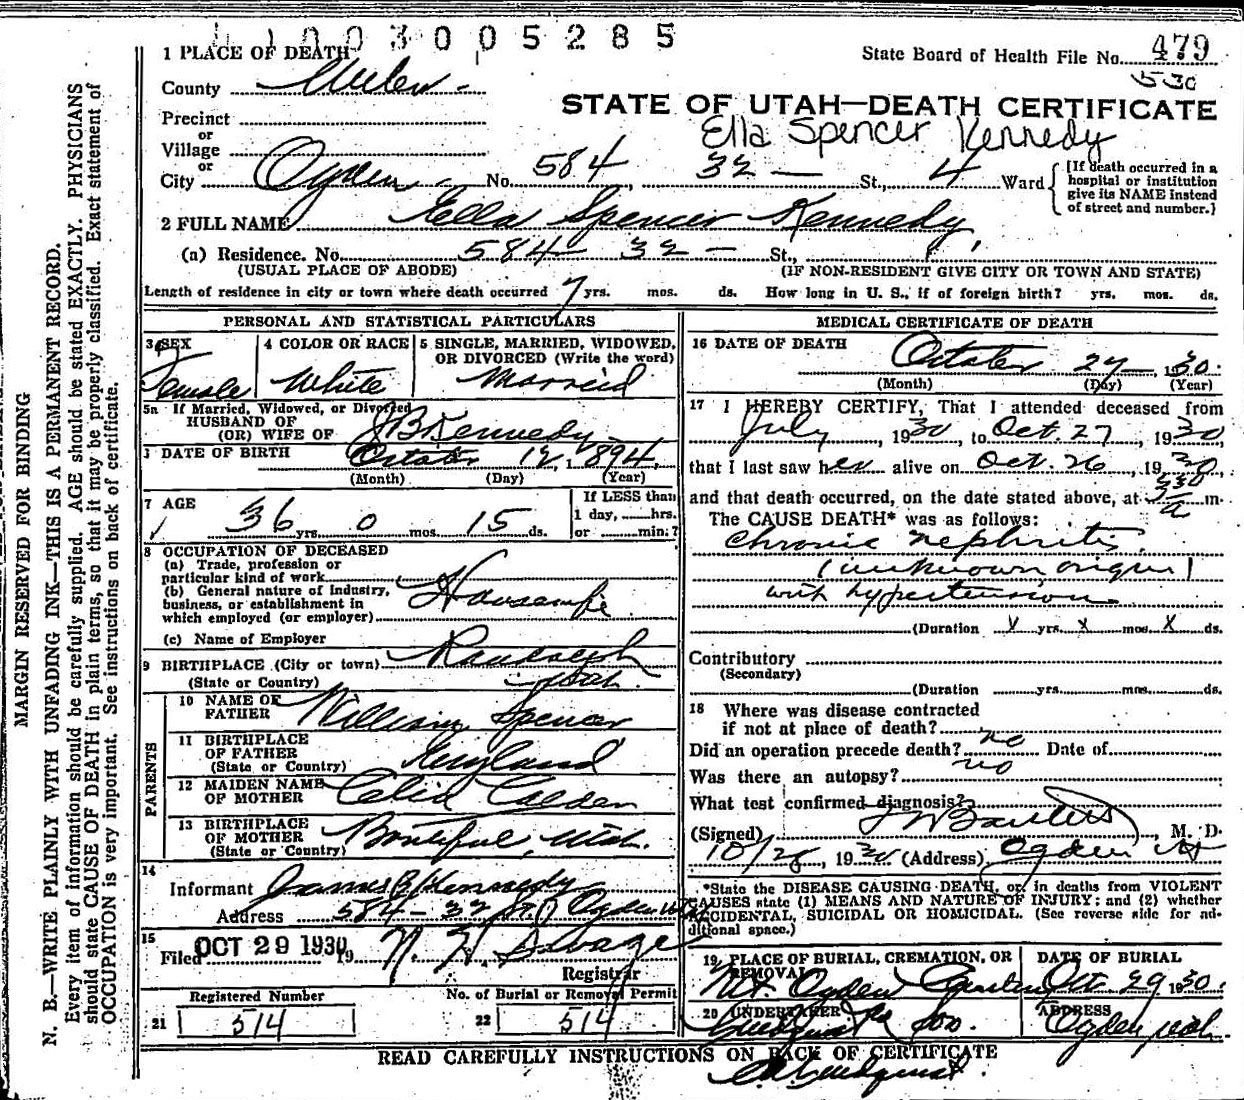 1 0 0 3 0 0 5 2 8 5
1 PLACE OF DEATH
State Board of Health File No. 479
530
County
STATE OF UTAH—DEATH CERTIFICATE
Precinct
Ella Spencer Kennedy
or
Village
or
City Ogden No. 584 32 St., 4 Ward {[If death occurred in a hospital or institution give its NAME instead of street and number.]
2 FULL NAME Ella Spencer Kennedy
(a) Residence. No. 584 32 St.,
(USUAL PLACE OF ABODE) (IF NON-RESIDENT GIVE CITY OR TOWN AND STATE)
Length of residence in city or town where death occurred 7 yrs. mos. ds. How long in U. S., if of foreign birth? yrs. mos. ds.
PERSONAL AND STATISTICAL PARTICULARS
3 SEX
Female
4 COLOR OR RACE
White
5 SINGLE, MARRIED, WIDOWED,
OR DIVORCED (Write the word)
Married
5a If Married, Widowed, or Divorced
HUSBAND OF
(OR) WIFE OF J B Kennedy
DATE OF BIRTH October 12, 1894
(Month) (Day) (Year)
7 AGE
36 yrs. 0 mos. 15 ds.
If LESS than
1 day, hrs.
or min.?
8 OCCUPATION OF DECEASED
(a) Trade, profession or
particular kind of work
(b) General nature of industry,
business, or establishment in
which employed (or employer) Housewife
(c) Name of Employer
9 BIRTHPLACE (City or town) Randolph
(State or Country) Utah.
PARENTS
10 NAME OF
FATHER William Spencer
11 BIRTHPLACE
OF FATHER
(State or Country) England
12 MAIDEN NAME
OF MOTHER Celia
13 BIRTHPLACE
OF MOTHER
(State or Country) Bountiful, Utah.
14
Informant James B Kennedy
Address 584-32 St Ogden
15
Filed OCT 29 1930 19
Registrar
Registered Number
21 514
No. of Burial or Removal Permit
22 514
MEDICAL CERTIFICATE OF DEATH
16 DATE OF DEATH October 27, 1930.
(Month) (Day) (Year)
17 I HEREBY CERTIFY, That I attended deceased from
July, 1930, to Oct. 27, 1930
that I last saw her alive on Oct. 26, 1930
and that death occurred, on the date stated above, at 330 a m.
The CAUSE DEATH* was as follows:
Chronic nephritis.
(unknown origin)
with hypertension
(Duration x yrs. x mos. x ds.
Contributory
(Secondary)
(Duration yrs. mos. ds.
18 Where was disease contracted
if not at place of death?
Did an operation precede death? no Date of
Was there an autopsy? no
What test confirmed diagnosis?
(Signed) M. D.
10/28, 1930 (Address) Ogden
*State the DISEASE CAUSING DEATH, or, in deaths from VIOLENT
CAUSES state (1) MEANS AND NATURE OF INJURY: and (2) whether
ACCIDENTAL, SUICIDAL OR HOMICIDAL. (See reverse side for ad-
ditional space.)
19 PLACE OF BURIAL, CREMATION, OR
REMOVAL
Mt. Ogden
DATE OF BURIAL
Oct 29 1930.
20 UNDERTAKER
Lindquist & Son.
ADDRESS
Ogden Utah
READ CAREFULLY INSTRUCTIONS ON BACK OF CERTIFICATE
Lindquist.
MARGIN RESERVED FOR BINDING
N. B.—WRITE PLAINLY WITH UNFADING INK—THIS IS A PERMANENT RECORD.
Every item of information should be carefully supplied. AGE should be stated EXACTLY. PHYSICIANS
should state CAUSE OF DEATH in plain terms, so that it may be properly classified. Exact statement of
OCCUPATION is very important. See instructions on back of certificate.